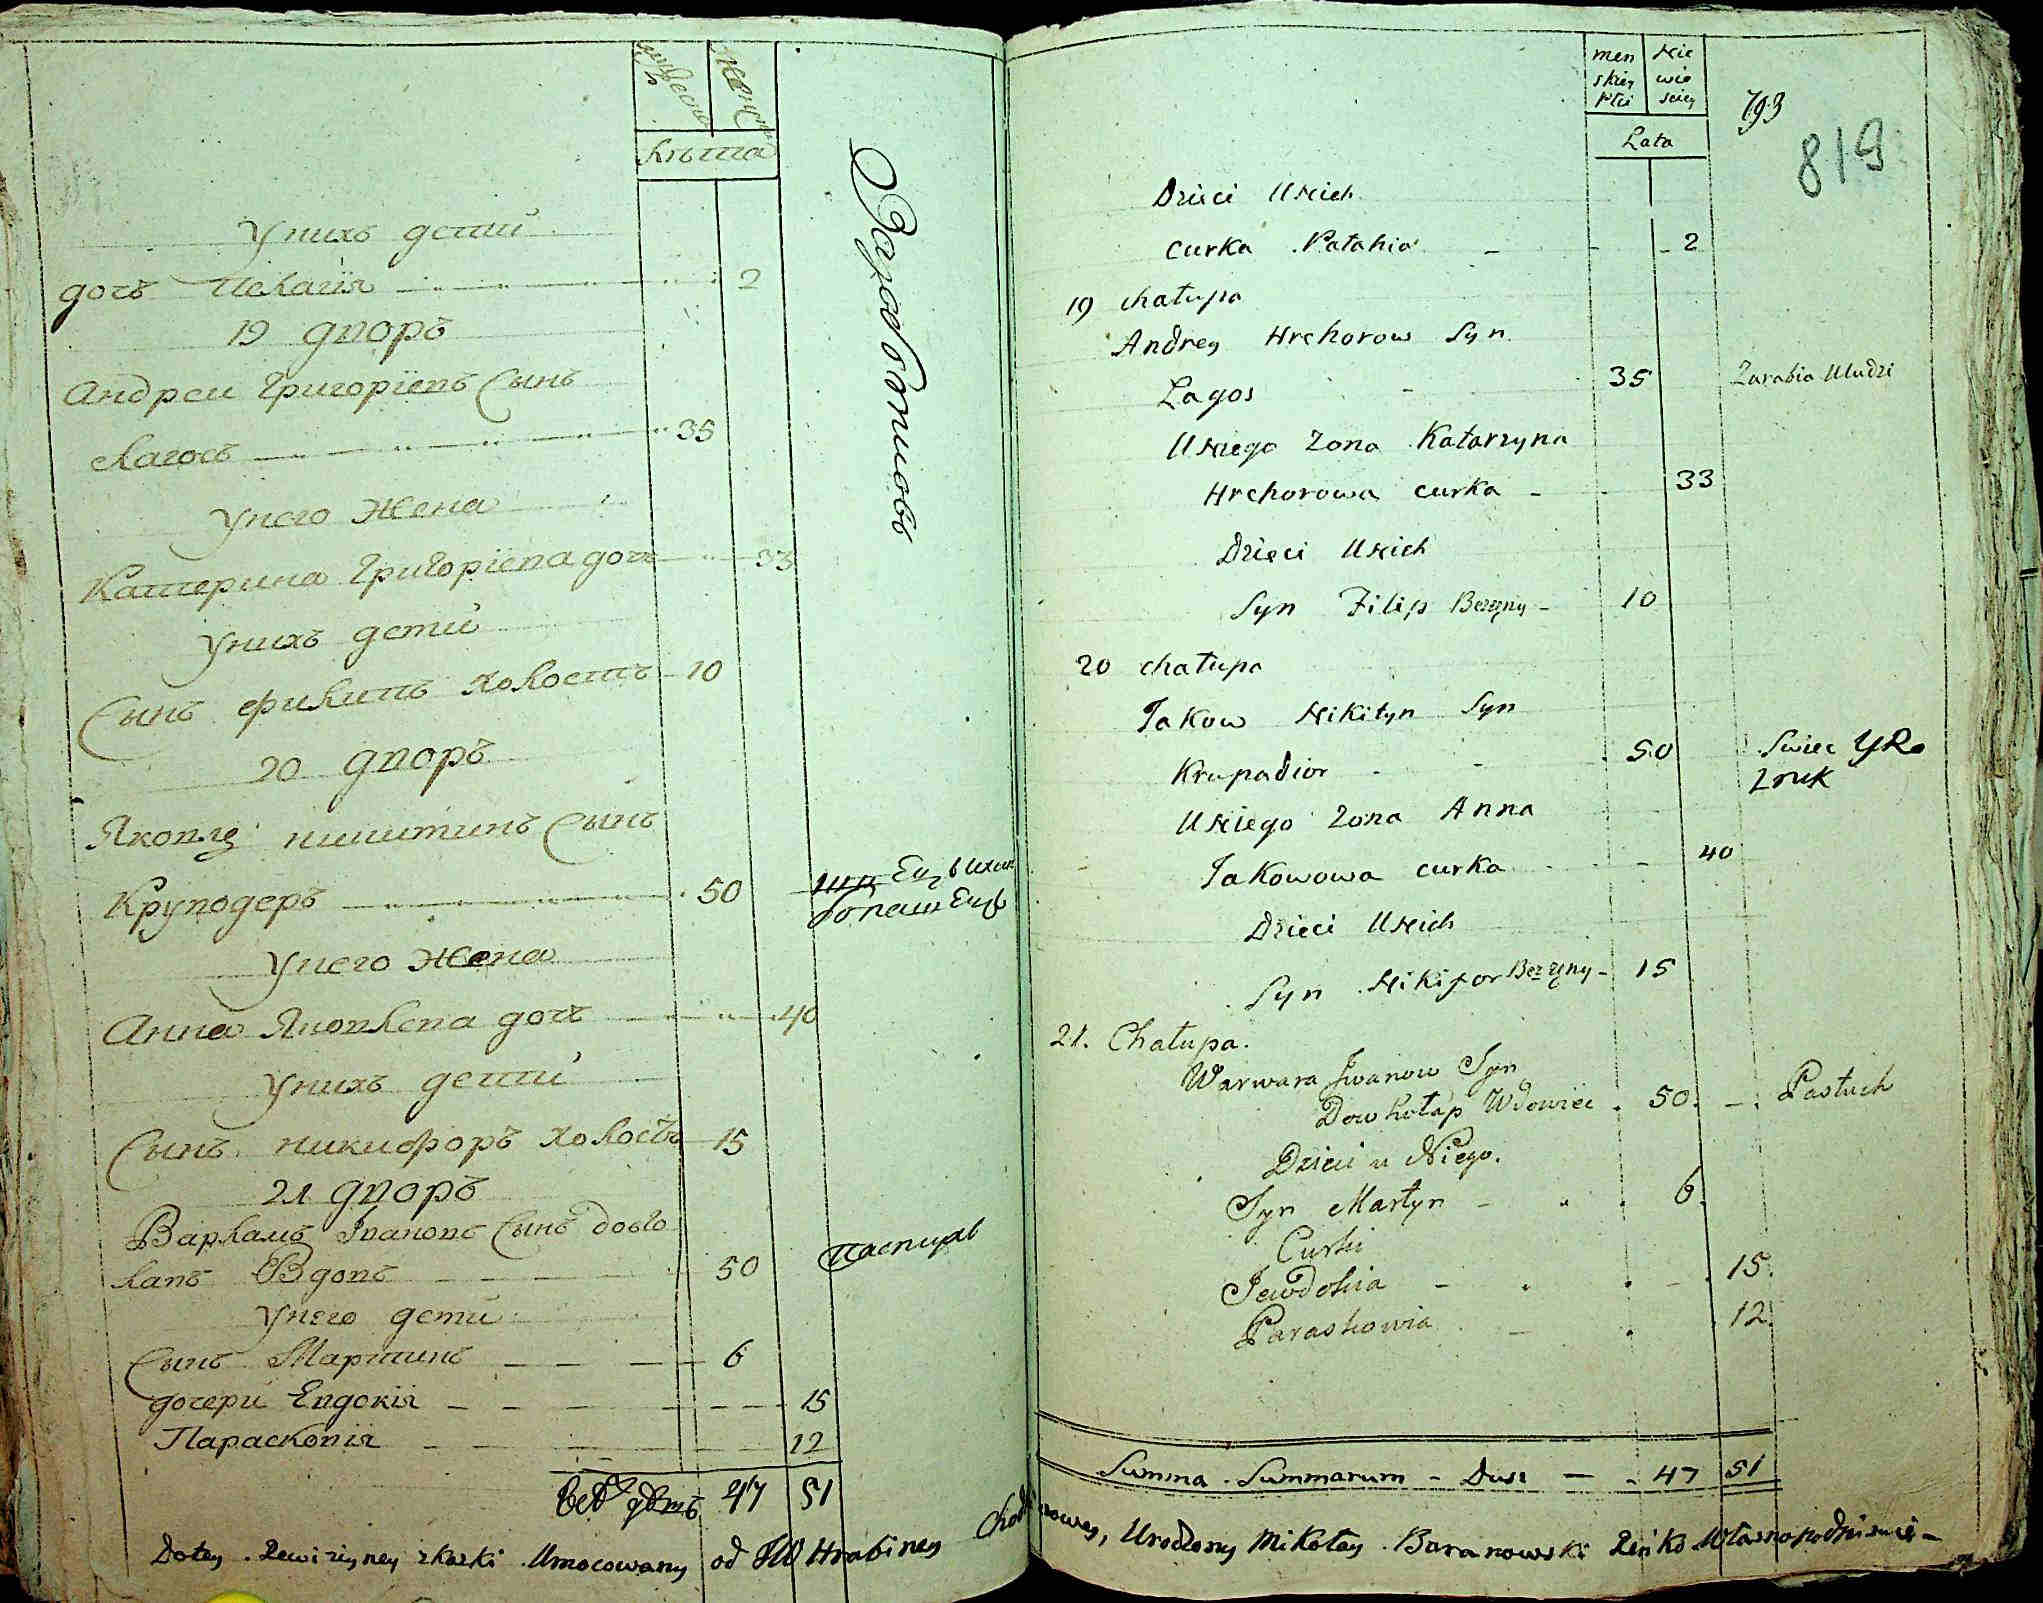 мужеска
женска
лѣта
У нихъ дети
дочь Пелагія 2
19 дворъ
Андреи Григоріевъ Сынъ
Лагосъ 35
У него жена
Катерина Григоріева дочь 33
У нихъ дети
Сынъ Филипъ холостъ 10
20 дворъ
Яковъ Никитинъ Сынъ
Круподеръ 50
У него жена
Анна Яковлева дочь 40
У нихъ дети
Сынъ никифоръ холостъ 15
21 дворъ
Варламъ Івановъ Сынъ довго
лапъ Вдовъ 50
Пастухъ
У него дети
Сынъ Мартинъ 6
дочери Евдокія 15
Парасковія 12
47 51
men skiey płci
Nie wie sciey
Lata
793
819
Dzieci U Nich
curka Pałahia 2
19 chałupa
Andrey Hrehorow Syn
Łagos 35 Zarabia U ludzi
U Niego Zona Katarzyna
Hrehorowa curka 33
Dzieci U Nich
Syn Filip Bezzęny 10
20 chałupa
Jakow Nikityn Syn
Krupadior 50 Swiec
U Niego Zona Anna
Jakowowa curka 40
Dzieci U Nich
Syn Nikifor Bezzęny 15
21. Chałupa.
Warwara Iwanow Syn
Dowhołap Wdowiec 50. Pastuch
Dzieci u Niego.
Syn Martyn 6.
Curki
Jewdokia 15.
Paraskowia 12.
Summa Summarum Dusz 47 51
Do tey Rewizyney skaski Umocowany od JW Hrabiney Chodkiewey, Urodzony Mikołay Baranowski Ręką Własną podpisuie